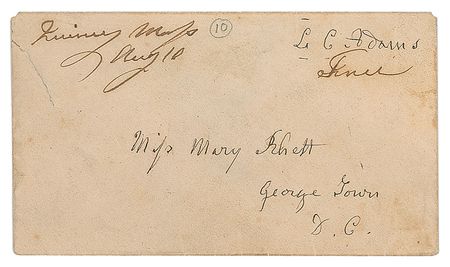 Quincy Mass
Aug 10
10
L C Adams
Free
Miss Mary Rhett
George Town
D. C.